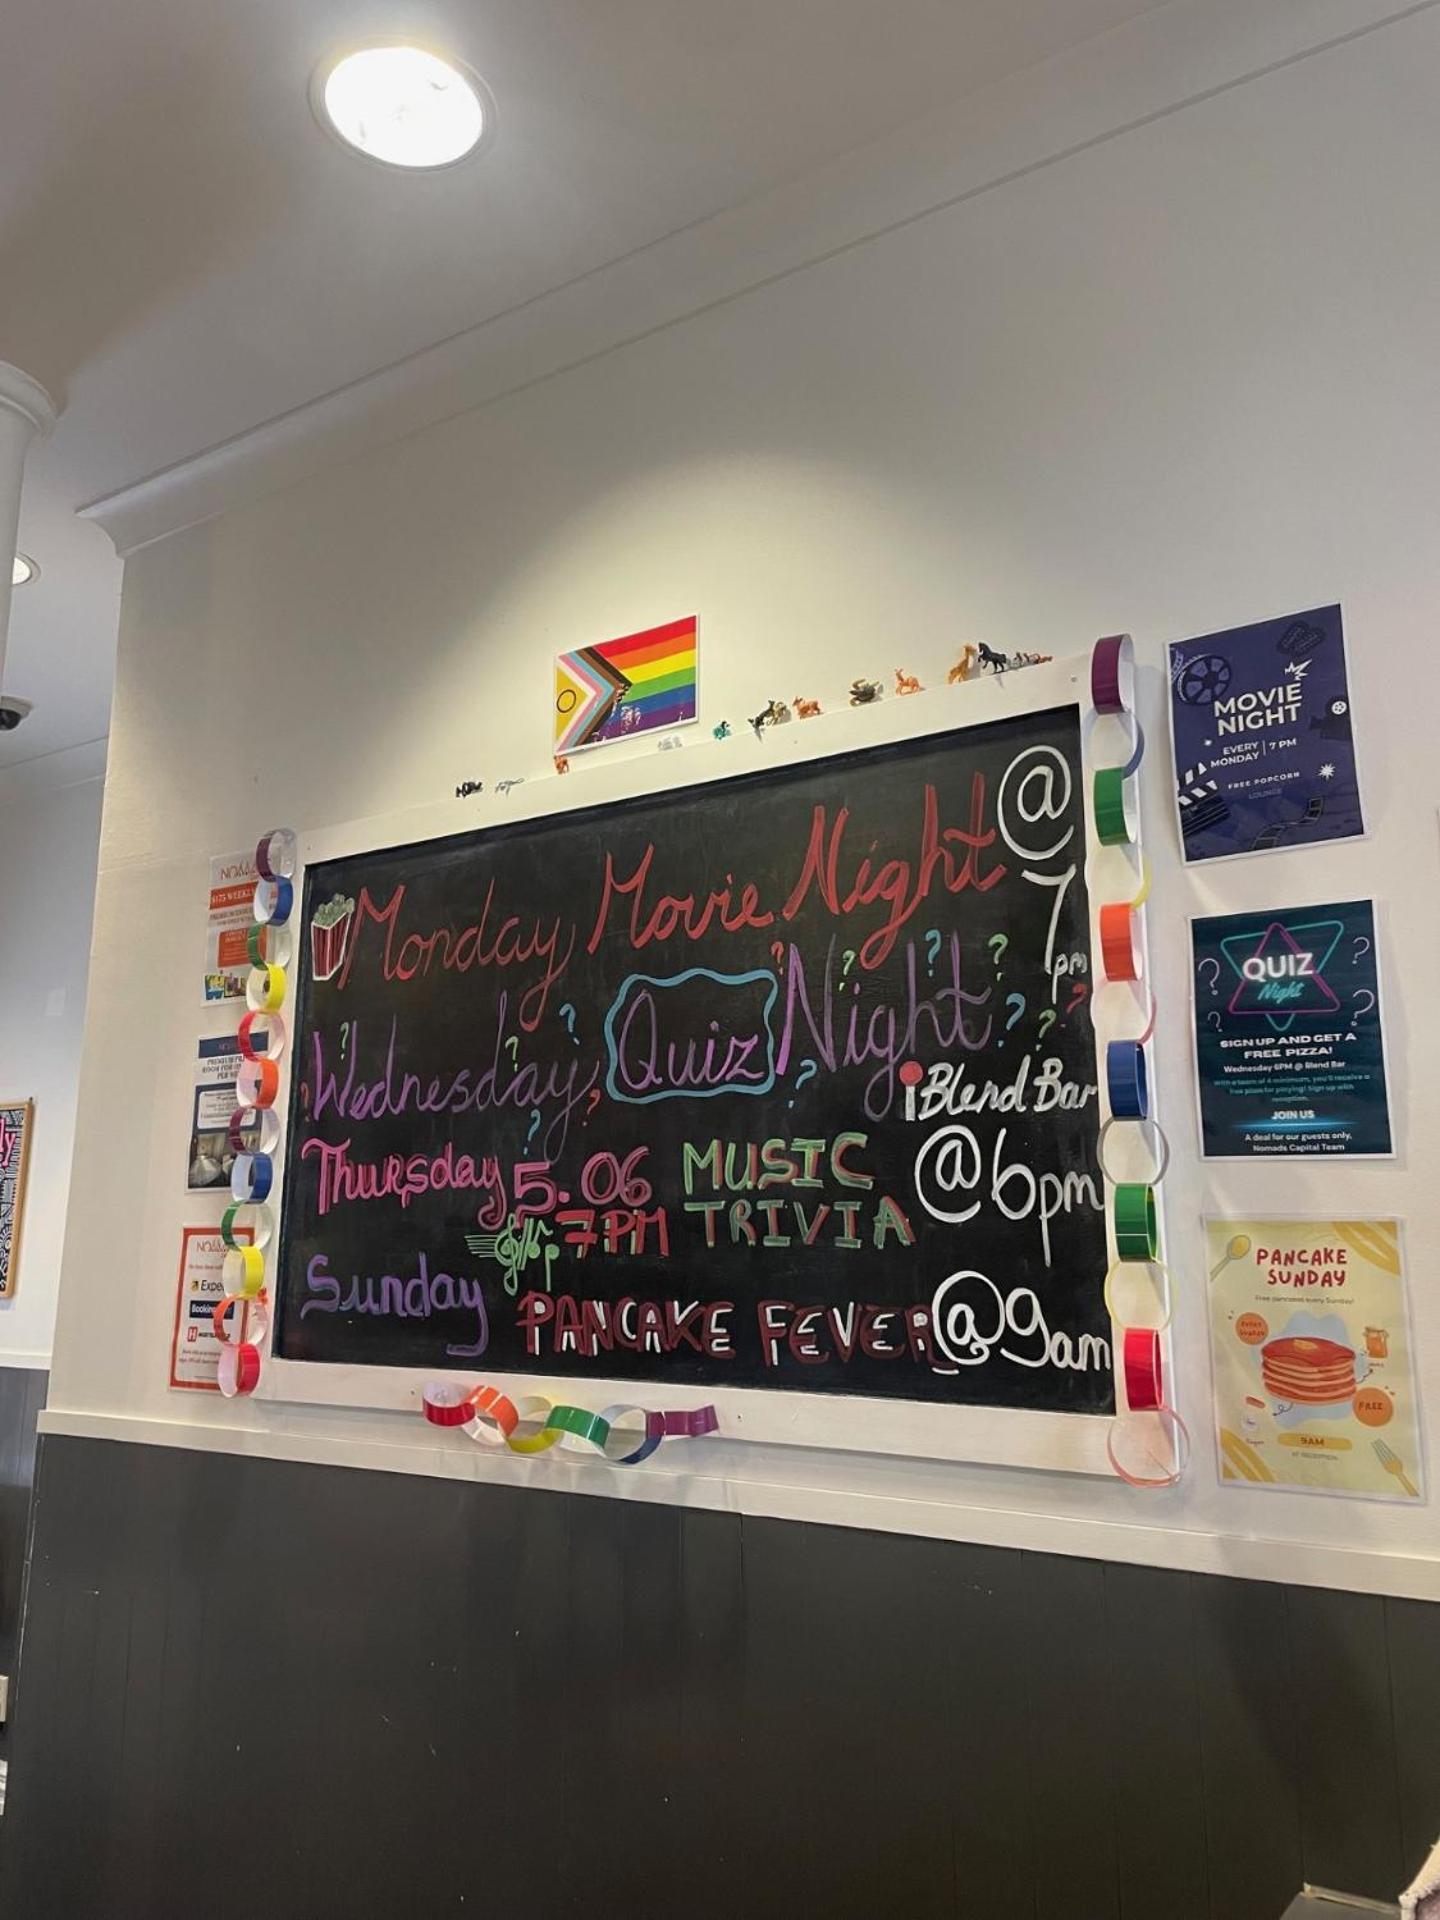 Monday Movie Night @
7
pm
Wednesday Quiz Night
Blend Bar
@6pm
Thursday 5.06 MUSIC
7PM TRIVIA
Sunday PANCAKE FEVER @9am
MOVIE
NIGHT
EVERY
MONDAY | 7 PM
FREE POPCORN
LOUNGE
QUIZ
Night
SIGN UP AND GET A
FREE PIZZA!
Wednesday 6PM @ Blend Bar
with a team of 4 minimum, you'll receive a
free pizza for playing! Sign up with
reception.
JOIN US
A deal for our guests only,
Nomads Capital Team
PANCAKE
SUNDAY
Free pancakes every Sunday!
FREE
9AM
AT RECEPTION
$175 WEEKLY
Expe
Booking